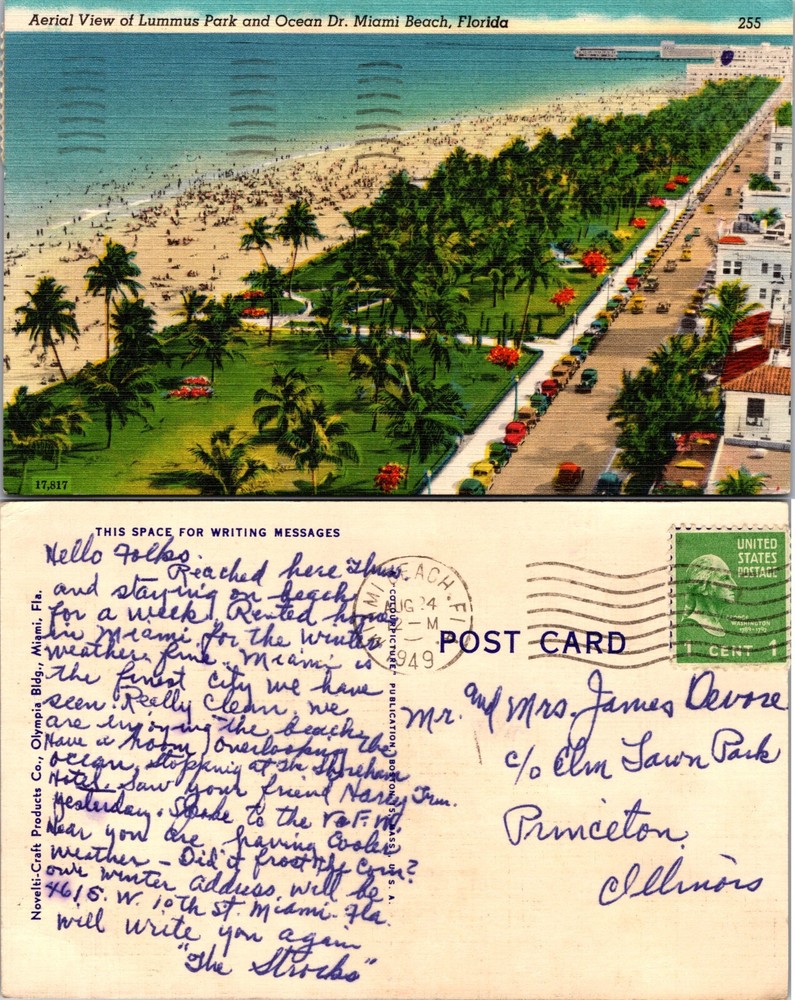 Aerial View of Lummus Park and Ocean Dr. Miami Beach, Florida
255
17,817
THIS SPACE FOR WRITING MESSAGES
Hello Folks.
Reached here Thurs
and staying on beach
for a week. Rented home
in Miami for the winter
weather fine. Miami is
the finest city we have
seen. Really clean, we
are enjoying the beach.
Have a room overlooking the
ocean, stopping at the Shoreham
Hotel. Saw your friend Harry
Yesterday. Spoke to the V of F.W.
Hear you are having cooler
weather - Did it frost the corn?
our winter address will be
461 S. W. 10th St. Miami. Fla.
will write you again
"The Strocks"
Novelti-Craft Products Co., Olympia Bldg., Miami, Fla.
MIAMI BEACH. FL
AUG 24
M
1949
POST CARD
UNITED
STATES
POSTAGE
GEORGE
WASHINGTON
1789-1797
1 CENT 1
Mr. and Mrs. James Devore
c/o Elm Lawn Park
Princeton,
Illinois